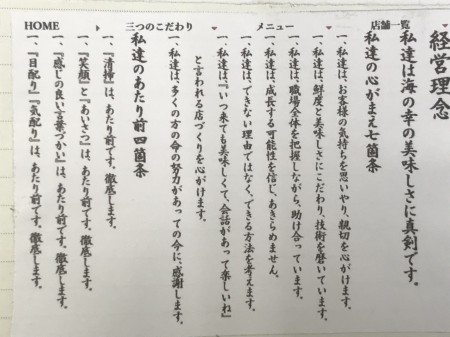 HOME
三つのこだわり
メニュー
店舗一覧
経営理念
私達は海の幸の美味しさに真剣です。
私達の心がまえ七箇条
一、私達は、お客様の気持ちを思いやり、親切を心がけます。
一、私達は、職場全体を把握しながら、助け合っています。
一、私達は、鮮度と美味しさにこだわり、技術を磨いています。
一、私達は、成長する可能性を信じ、あきらめません。
一、私達は、できない理由ではなく、できる方法を考えます。
一、私達は、『いつ来ても美味しくて、会話があって楽しいね』
と言われる店づくりを心がけます。
一、私達は、多くの方の命の努力があっての今に、感謝します。
私達のあたり前四箇条
一、『清掃』は、あたり前です。徹底します。
一、『笑顔』と『あいさつ』は、あたり前です。徹底します。
一、『感じの良い言葉づかい』は、あたり前です。徹底します。
一、『目配り』『気配り』は、あたり前です。徹底します。